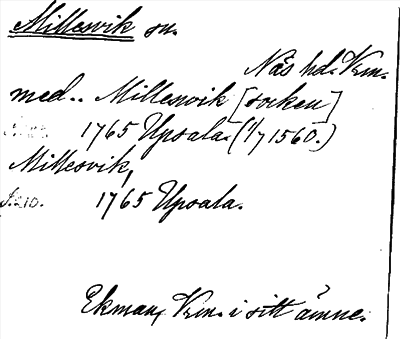 Millesvik sn.
Näs hd. Vrm.
med.. Millesvik [socken]
1765 Upsala. (1/7 1560.)
Millesvik,
S. 210. 1765 Upsala.
Ekman, Vrm. i sitt ämne.